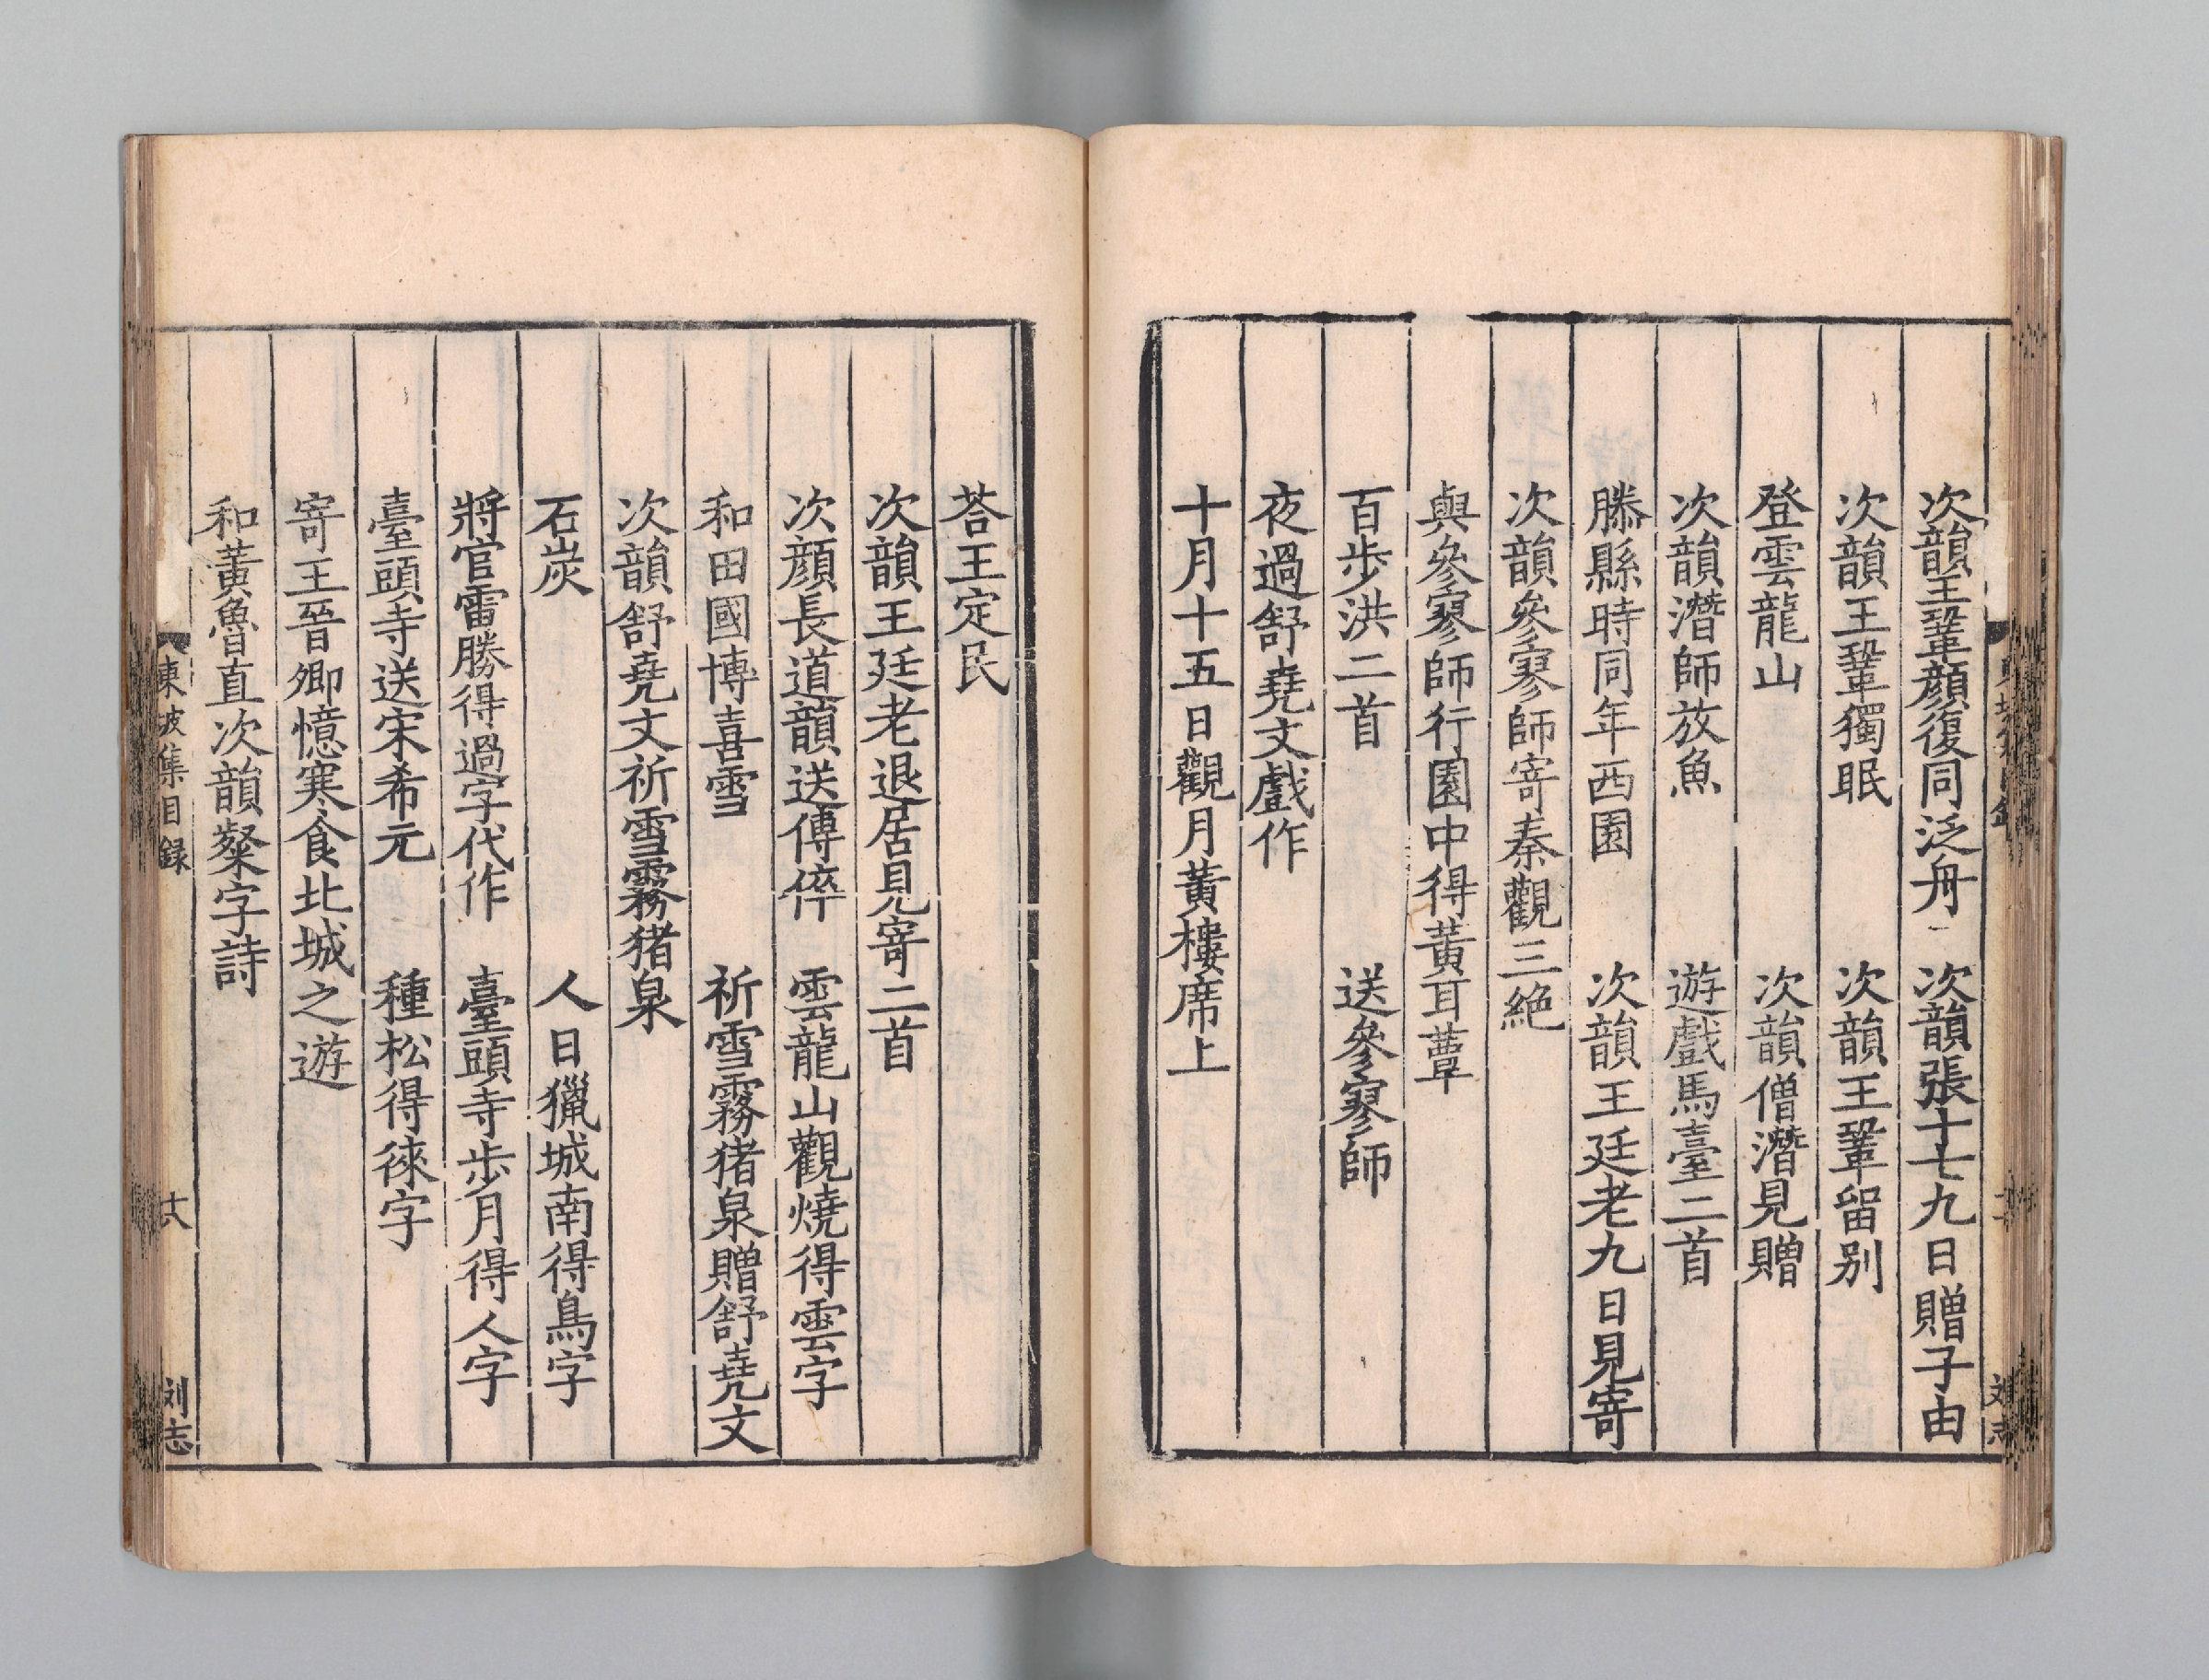 次韻王鞏顏復同泛舟　次韻張十七九日贈子由
次韻王鞏獨眠　次韻王鞏留别
登雲龍山　次韻僧潛見贈
次韻潛師放魚　遊戲馬臺二首
滕縣時同年西園　次韻王廷老九日見寄
次韻參寥師寄秦觀三絶
與參寥師行園中得黃耳蕈
百步洪二首　送參寥師
夜過舒堯文戲作
十月十五日觀月黃樓席上
荅王定民
次韻王廷老退居見寄二首
次顏長道韻送傅倅　雲龍山觀燒得雲字
和田國博喜雪　祈雪霧猪泉贈舒堯文
次韻舒堯文祈雪霧猪泉
石炭　人日獵城南得鳥字
將官雷勝得過字代作　臺頭寺步月得人字
臺頭寺送宋希元　種松得徠字
寄王晉卿憶寒食北城之遊
和黃魯直次韻粲字詩
東坡集目録　十八　刘志